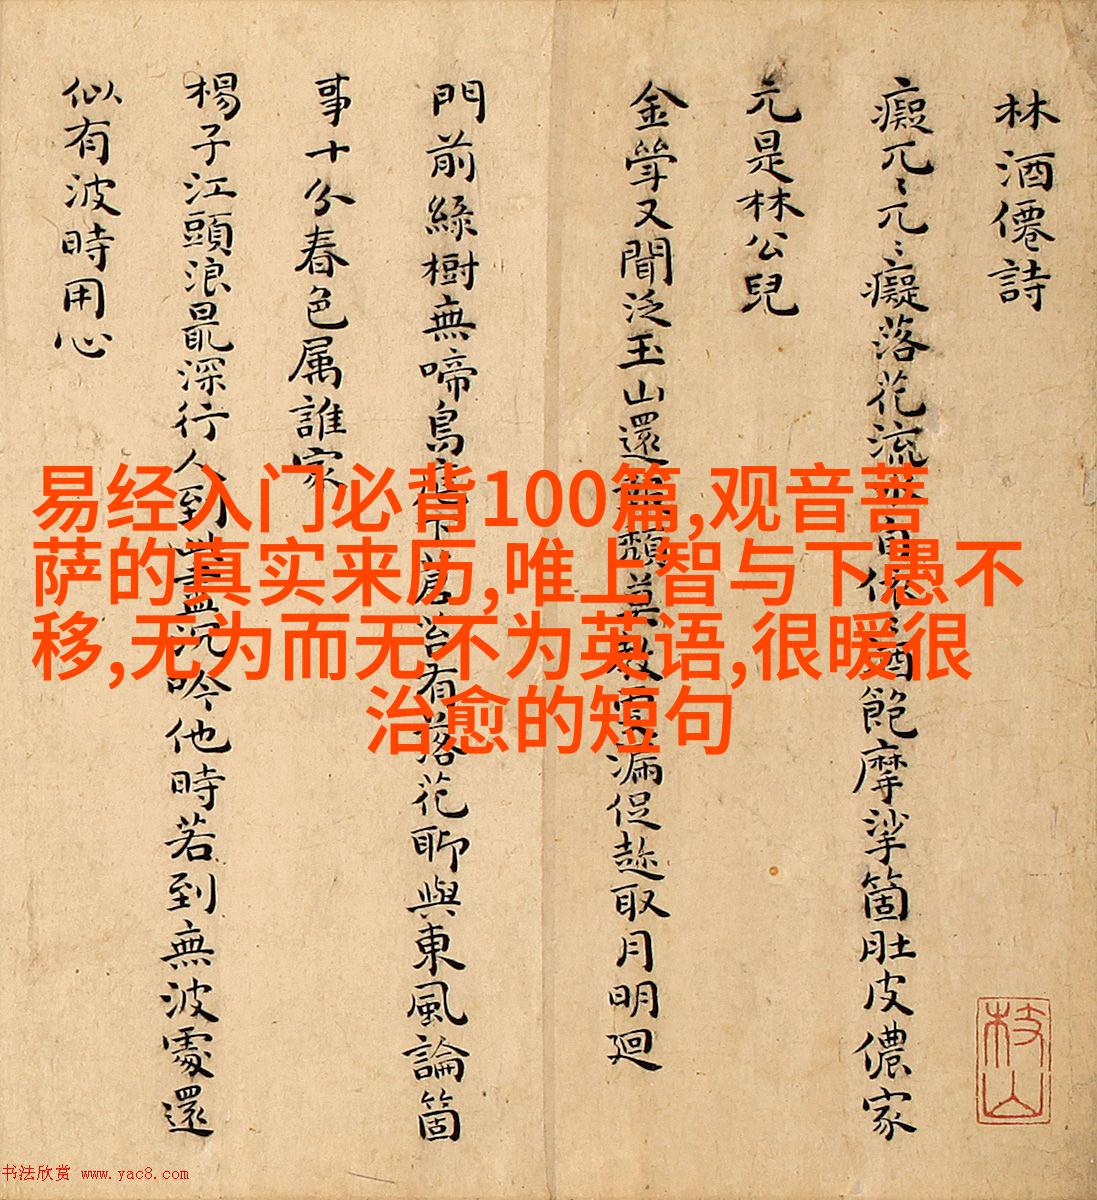 林酒僊詩
癡兀〻兀〻癡落花流自依酒飽摩挲箇肚皮儂家
元是林公兒
金斝又聞泛玉山還頹莫教更漏促趂取月明廻
門前綠樹無啼鳥下蒼苔有落花聊與東風論箇
事十分春色属誰家
楊子江頭浪最深行人到此盡沉吟他時若到無波處還
似有波時用心
枝山
易经入门必背100篇,观音菩
萨的真实来历,唯上智与下愚不
移,无为而无不为英语,很暖很
治愈的短句
书法欣赏 www.yac8.com